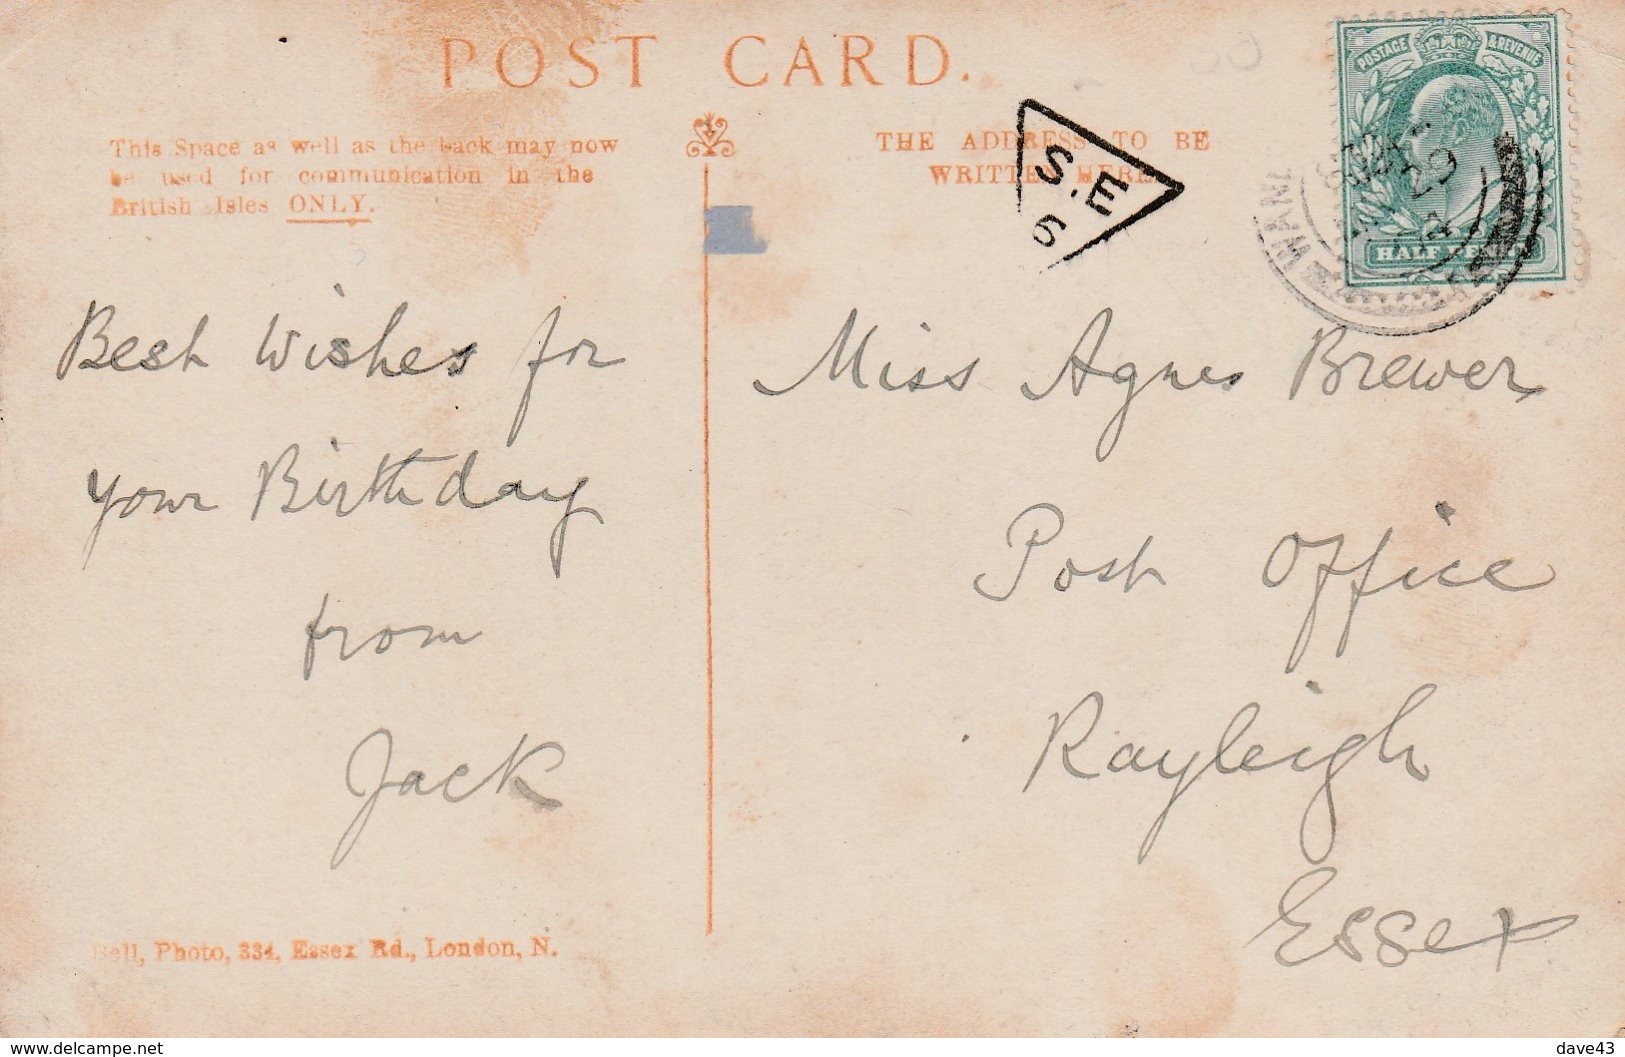 POST CARD.
This Space as well as the back may now
be used for communication in the
British Isles ONLY.
THE ADDRESS TO BE
WRITTEN HERE
S.E
6
POSTAGE & REVENUE
HALF PENNY
29
Best Wishes for
your Birthday
from
Jack
Miss Agnes Brewer
Post Office
Rayleigh
Essex
Bell, Photo, 334, Essex Rd., London, N.
delcampe.net
dave43